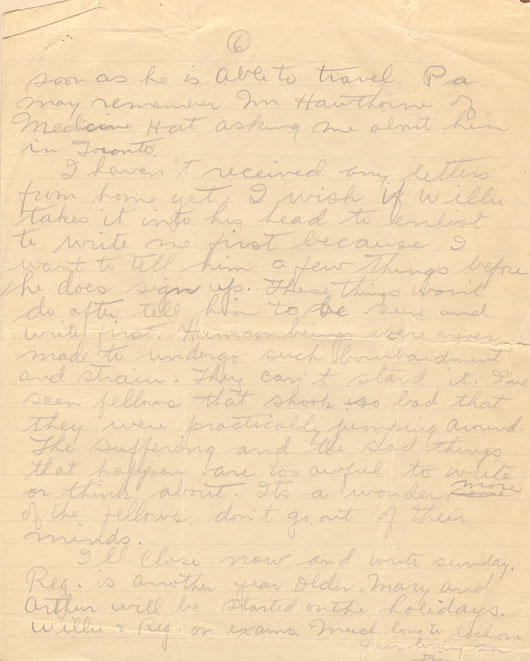 6
soon as he is able to travel. Pa
may remember Mr. Hawthorne of
Medicine Hat asking me about him
in Toronto.
I haven't received any letters
from home yet. I wish if Willie
takes it into his head to enlist
to write me first because I
want to tell him a few things before
he does sign up. These things won't
do after tell him to be sure and
write first. Human beings were never
made to undergo such bombardment
and strain. They can't stand it. I've
seen fellows that shook so bad that
they were practically jumping around.
The suffering and the sad things
that happen are too awful to write
or think about. Its a wonder more
of the fellows don't go out of their
minds.
I'll close now and write sunday.
Reg. is another year older. Mary and
Arthur will be started on the holidays.
Willie & Reg. on exams. Much love to each one
Your loving son